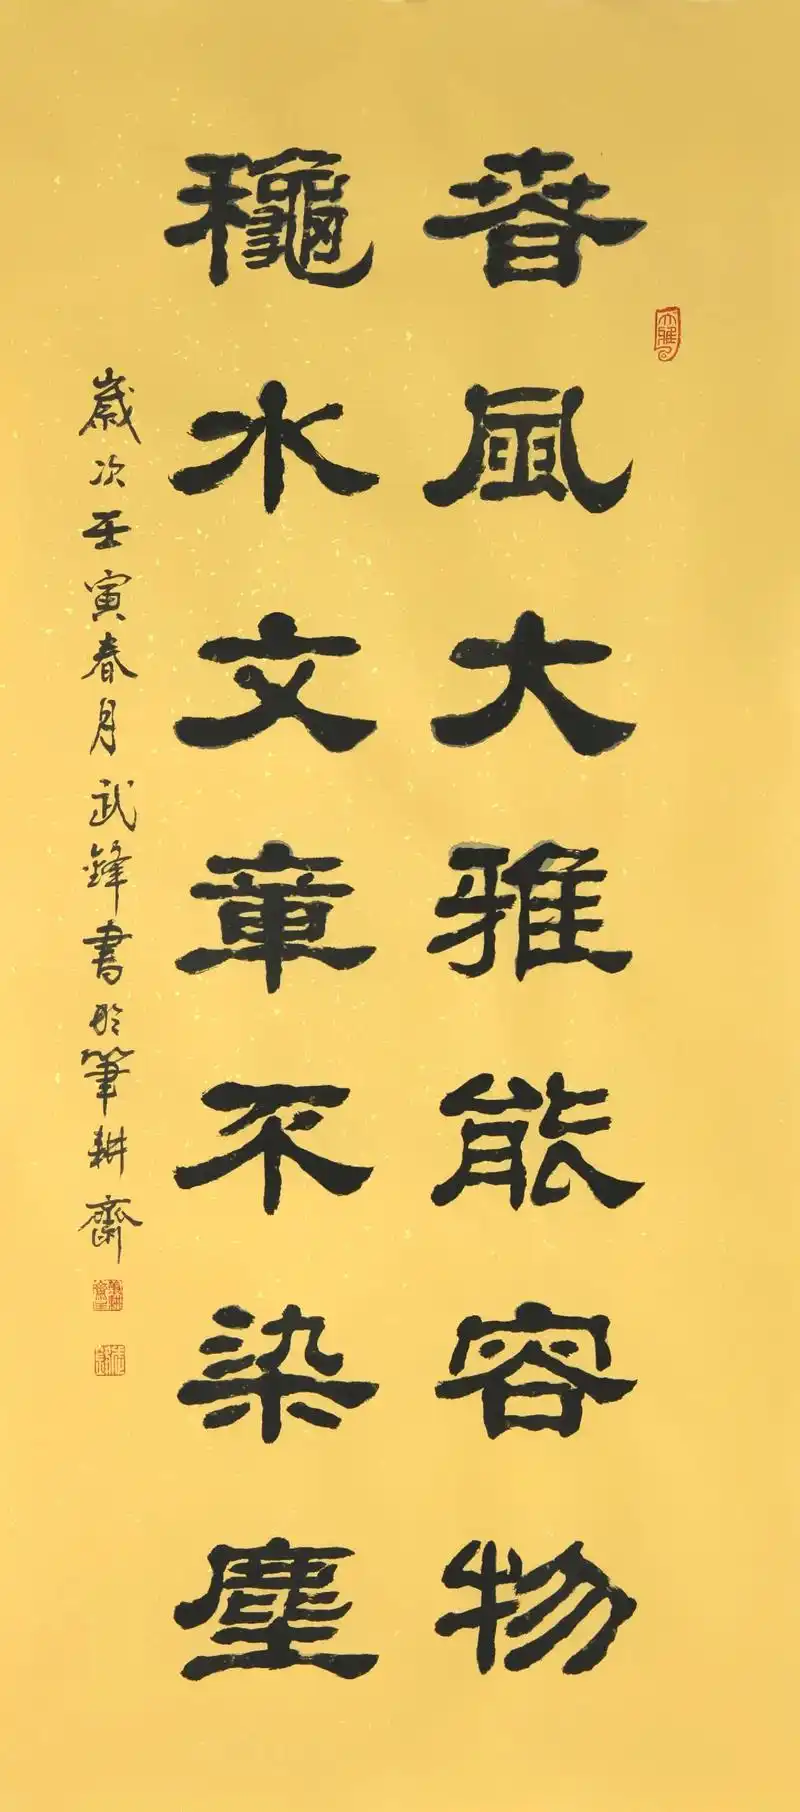 春風大雅能容物
龝水文章不染塵
歲次壬寅春月武鋒書於筆耕齋